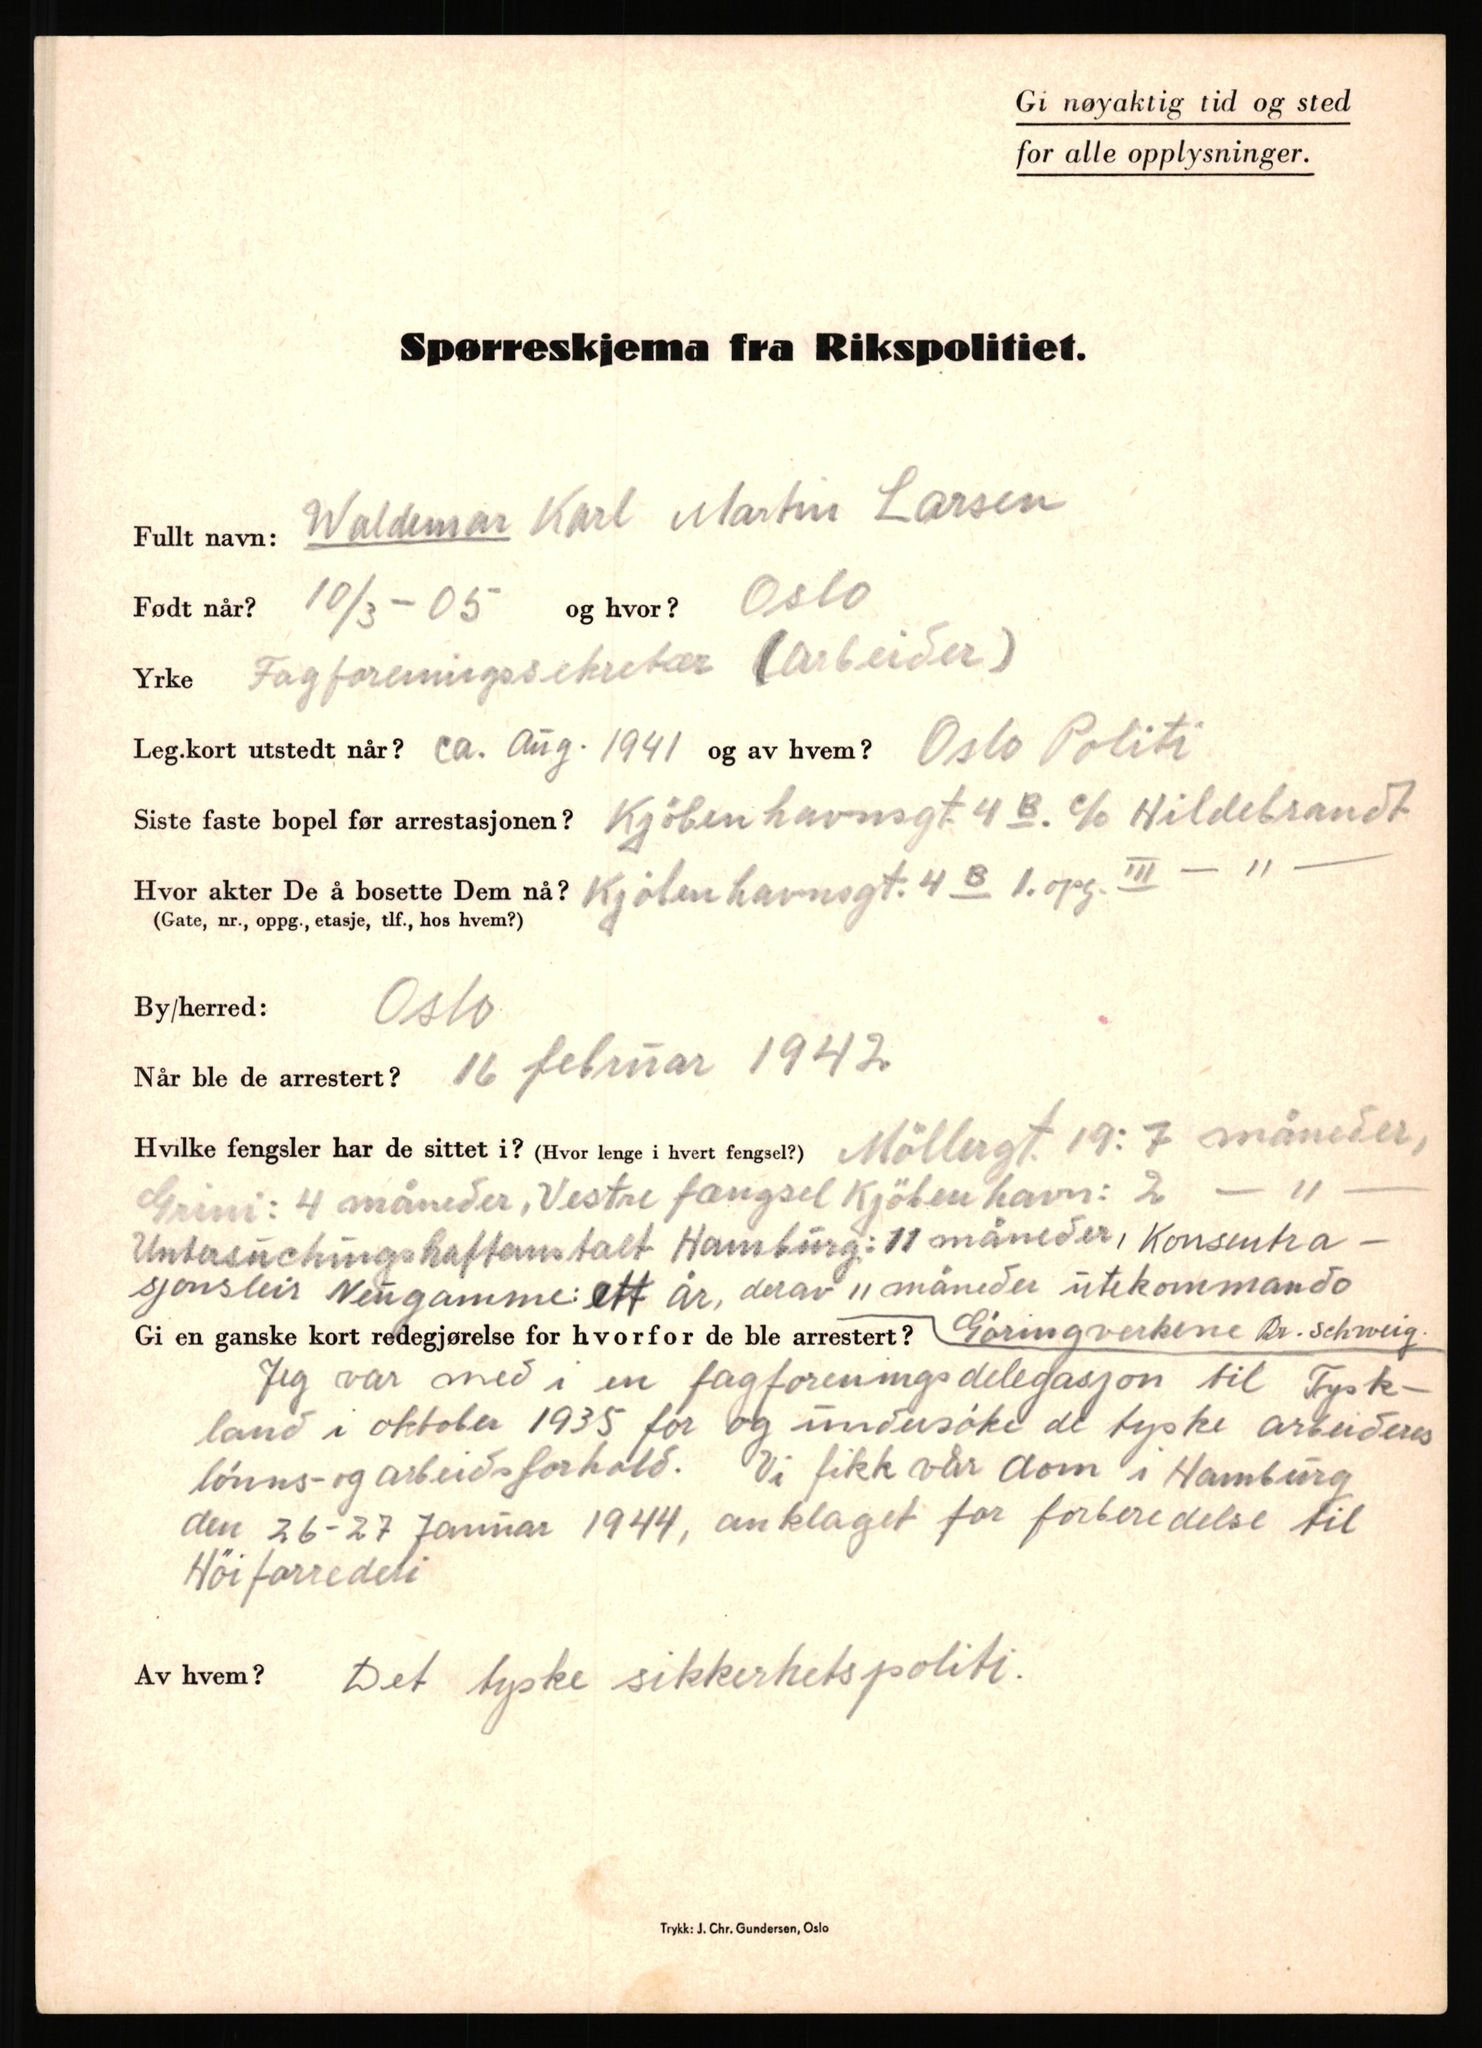 Gi nøyaktig tid og sted
for alle opplysninger.
Spørreskjema fra Rikspolitiet.
Fullt navn: Waldemar Karl Martin Larsen
Født når? 10/3 - 05 og hvor? Oslo
Yrke Fagforeningssekretær (Arbeider)
Leg.kort utstedt når? ca. Aug. 1941 og av hvem? Oslo Politi
Siste faste bopel før arrestasjonen? Kjöbenhavnsgt. 4 B. c/o Hildebrandt
Hvor akter De å bosette Dem nå? Kjöbenhavnsgt. 4 B 1. opg. III — " —
(Gate, nr., oppg., etasje, tlf., hos hvem?)
By/herred: Oslo
Når ble de arrestert? 16 februar 1942
Hvilke fengsler har de sittet i? (Hvor lenge i hvert fengsel?) Möllergt. 19: 7 måneder,
Grini: 4 måneder, Vestre fængsel Kjöbenhavn: 2 — " —
Untersuchungshaftanstalt Hamburg: 11 måneder, Konsentra-
sjonsleir Neugamme: ett år, derav 11 måneder utekommando
Gi en ganske kort redegjørelse for hvorfor de ble arrestert? Göringverkene Br. Schweig.
Jeg var med i en fagforeningsdelegasjon til Tysk-
land i oktober 1935 for og undersöke de tyske arbeideres
lönns- og arbeidsforhold. Vi fikk vår dom i Hamburg
den 26-27 Januar 1944, anklaget for forberedelse til
Höiforrederi
Av hvem? Det tyske sikkerhetspoliti.
Trykk: J. Chr. Gundersen, Oslo